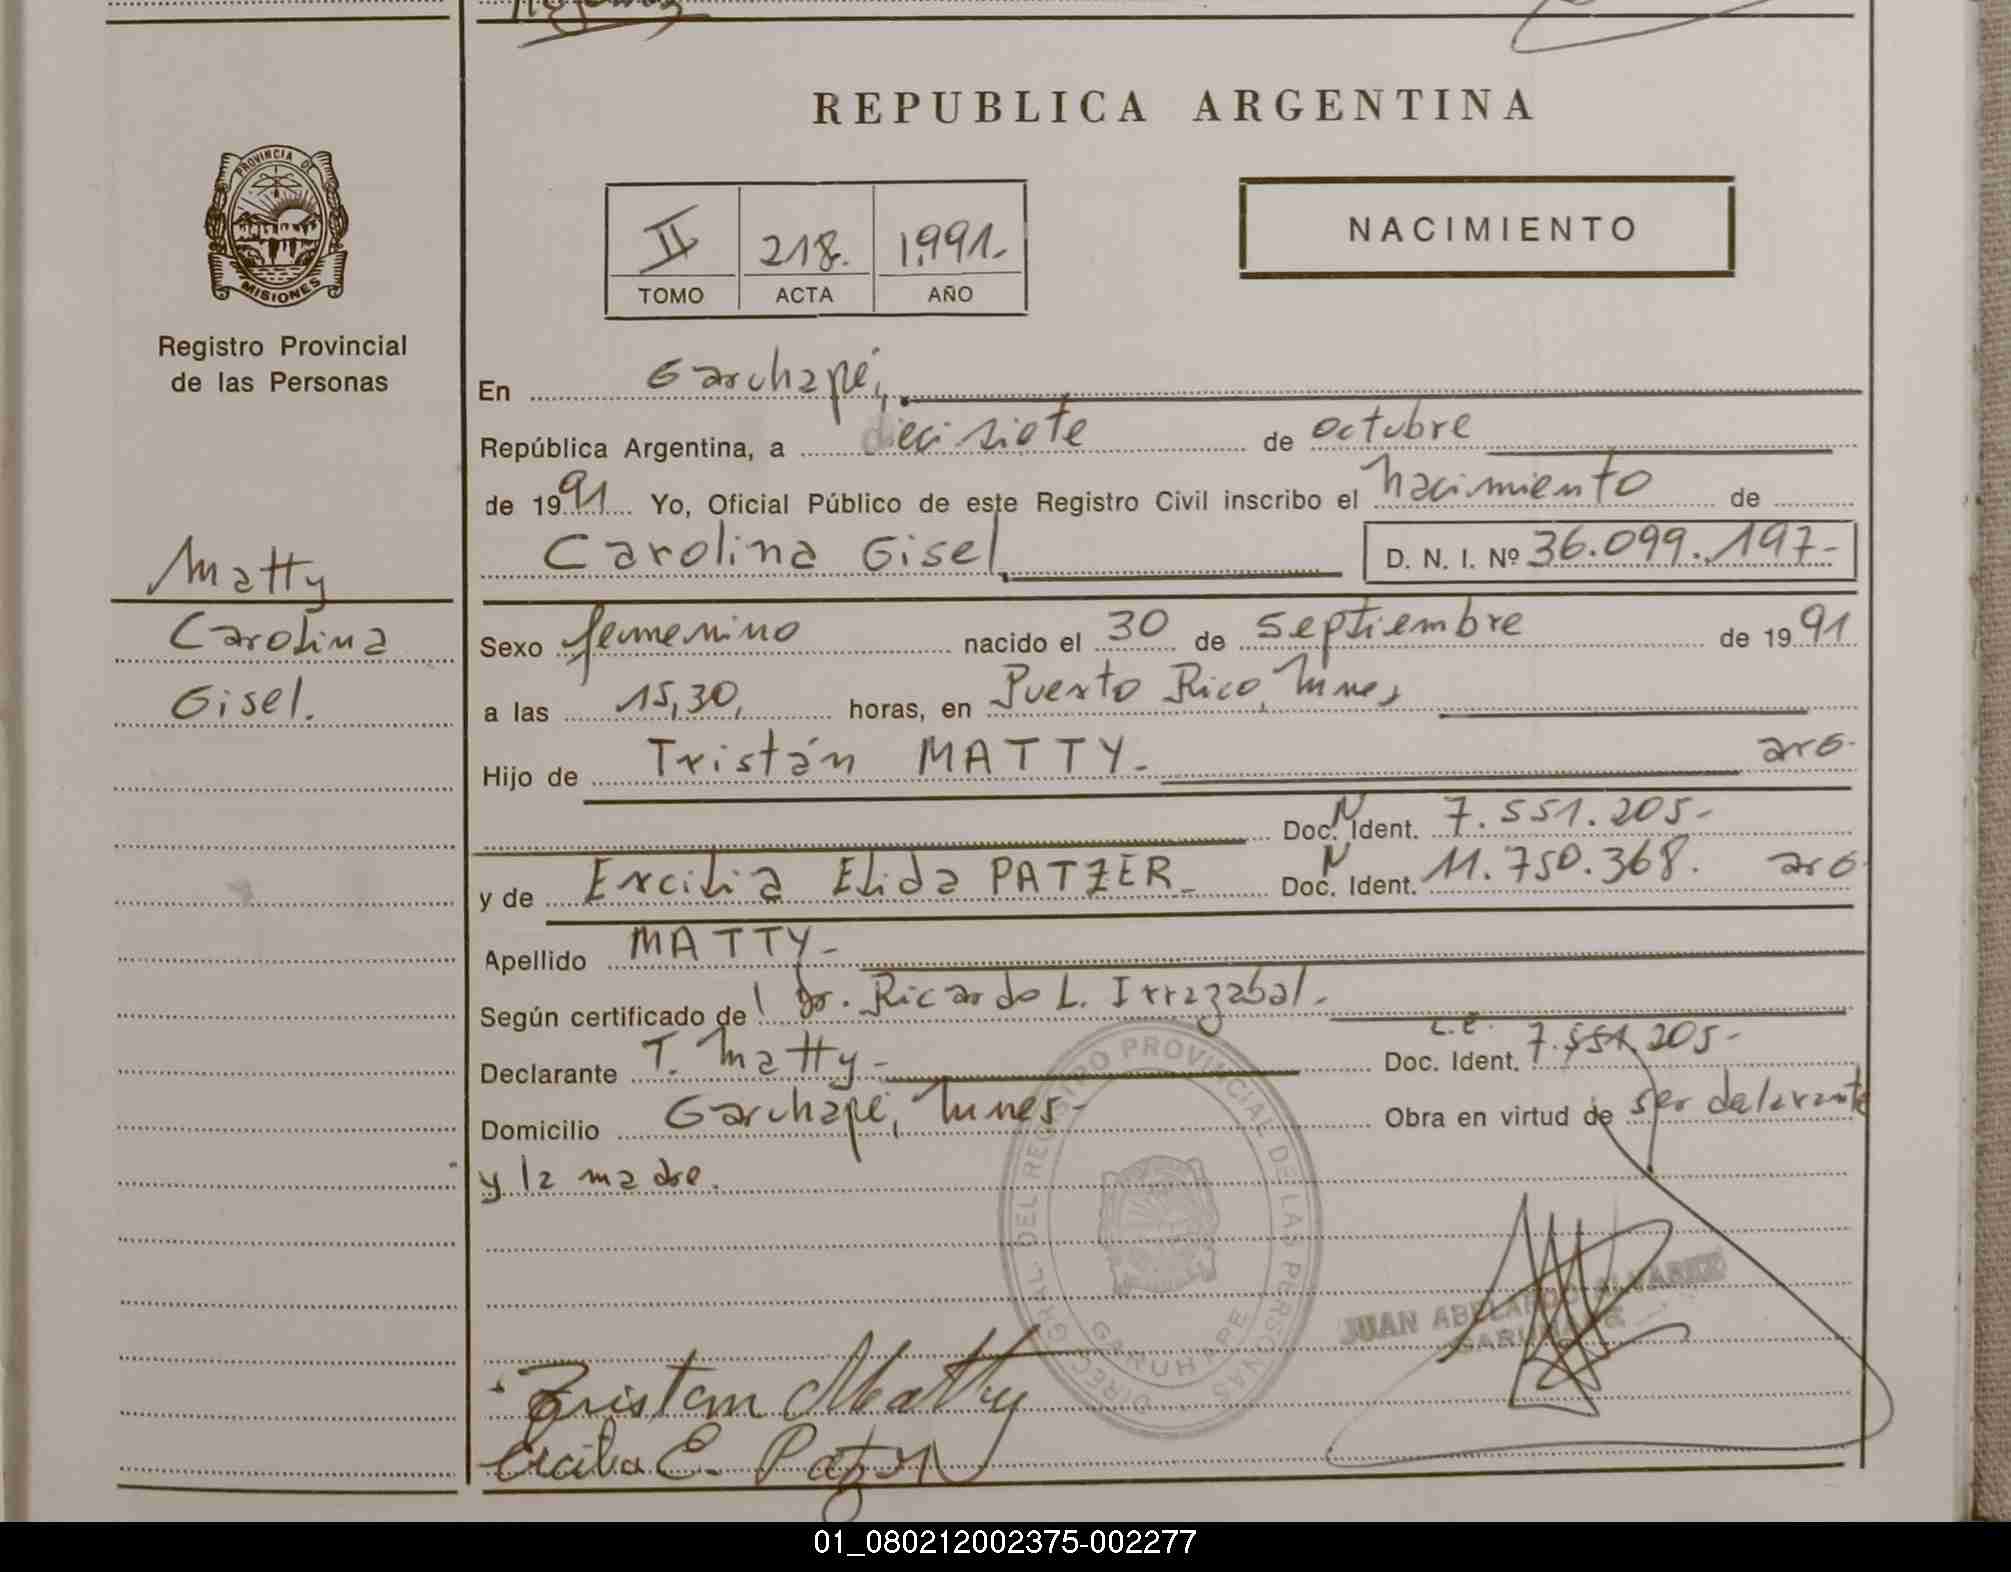 REPUBLICA ARGENTINA
PROVINCIA DE
MISIONES
Registro Provincial
de las Personas
II 218. 1.991.-
TOMO ACTA AÑO
NACIMIENTO
En Garuhapé,
República Argentina, a dieci siete de octubre
de 1991 Yo, Oficial Público de este Registro Civil inscribo el nacimiento de
Carolina Gisel D. N. I. Nº 36.099.197-
Matty
Carolina
Gisel.
Sexo femenino nacido el 30 de septiembre de 1991
a las 15,30, horas, en Puerto Rico, Mnes,
Hijo de Tristán MATTY.- arg.
Doc. Ident. 7.551.205-
y de Ercilia Elida PATZER- Doc. Ident. 11.750.368. arg
Apellido MATTY-
Según certificado de Dr. Ricardo L. Irrazabal.-
Declarante T. Matty- Doc. Ident. L.E. 7.551.205-
Domicilio Garuhapé, Mnes- Obra en virtud de ser delarante
y la madre.
DIRECC. GRAL. DEL REGISTRO PROVINCIAL DE LAS PERSONAS
GARUHAPE
JUAN ABELARDO ALVAREZ
Tristan Matty
Ercilia E. Patzer
01_080212002375-002277